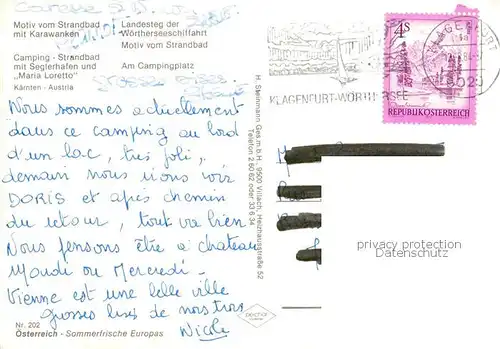 Motiv vom Strandbad
mit Karawanken
Landesteg der
Wörtherseeschiffahrt
Motiv vom Strandbad
Camping - Strandbad
mit Seglerhafen und
„Maria Loretto"
Am Campingplatz
Kärnten - Austria
Nous sommes actuellement
dans ce camping au bord
d'un lac, très joli,
demain nous irons voir
DORIS et après chemin
du retour, tout va bien
Nous pensons être à chateau
Mardi ou Mercredi -
Vienne est une belle ville
Grosses bises de nous trois
Nicole
Nr. 202
Österreich - Sommerfrische Europas
H. Steinmann Ges.m.b.H. 9500 Villach, Heizhausstraße 52
Telefon 2 60 62 oder 33 6 34
KLAGENFURT-WÖRTHERSEE
4S
REPUBLIK ÖSTERREICH
privacy protection
Datenschutz